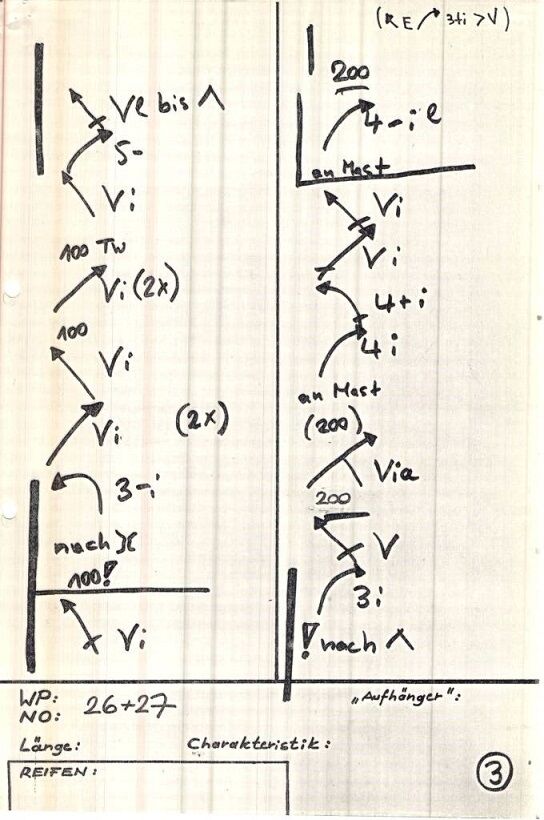 Ve bis Λ
5-
Vi
100 TW
Vi (2x)
100
Vi
Vi (2x)
3-i
nach )(
100!
Vi
(RE 3+i > V)
200
4-i e
an Mast
Vi
Vi
4+i
4i
an Mast
(200)
Via
200
V
3i
! nach Λ
WP:
NO: 26+27
„Aufhänger":
Länge: Charakteristik:
REIFEN:
3